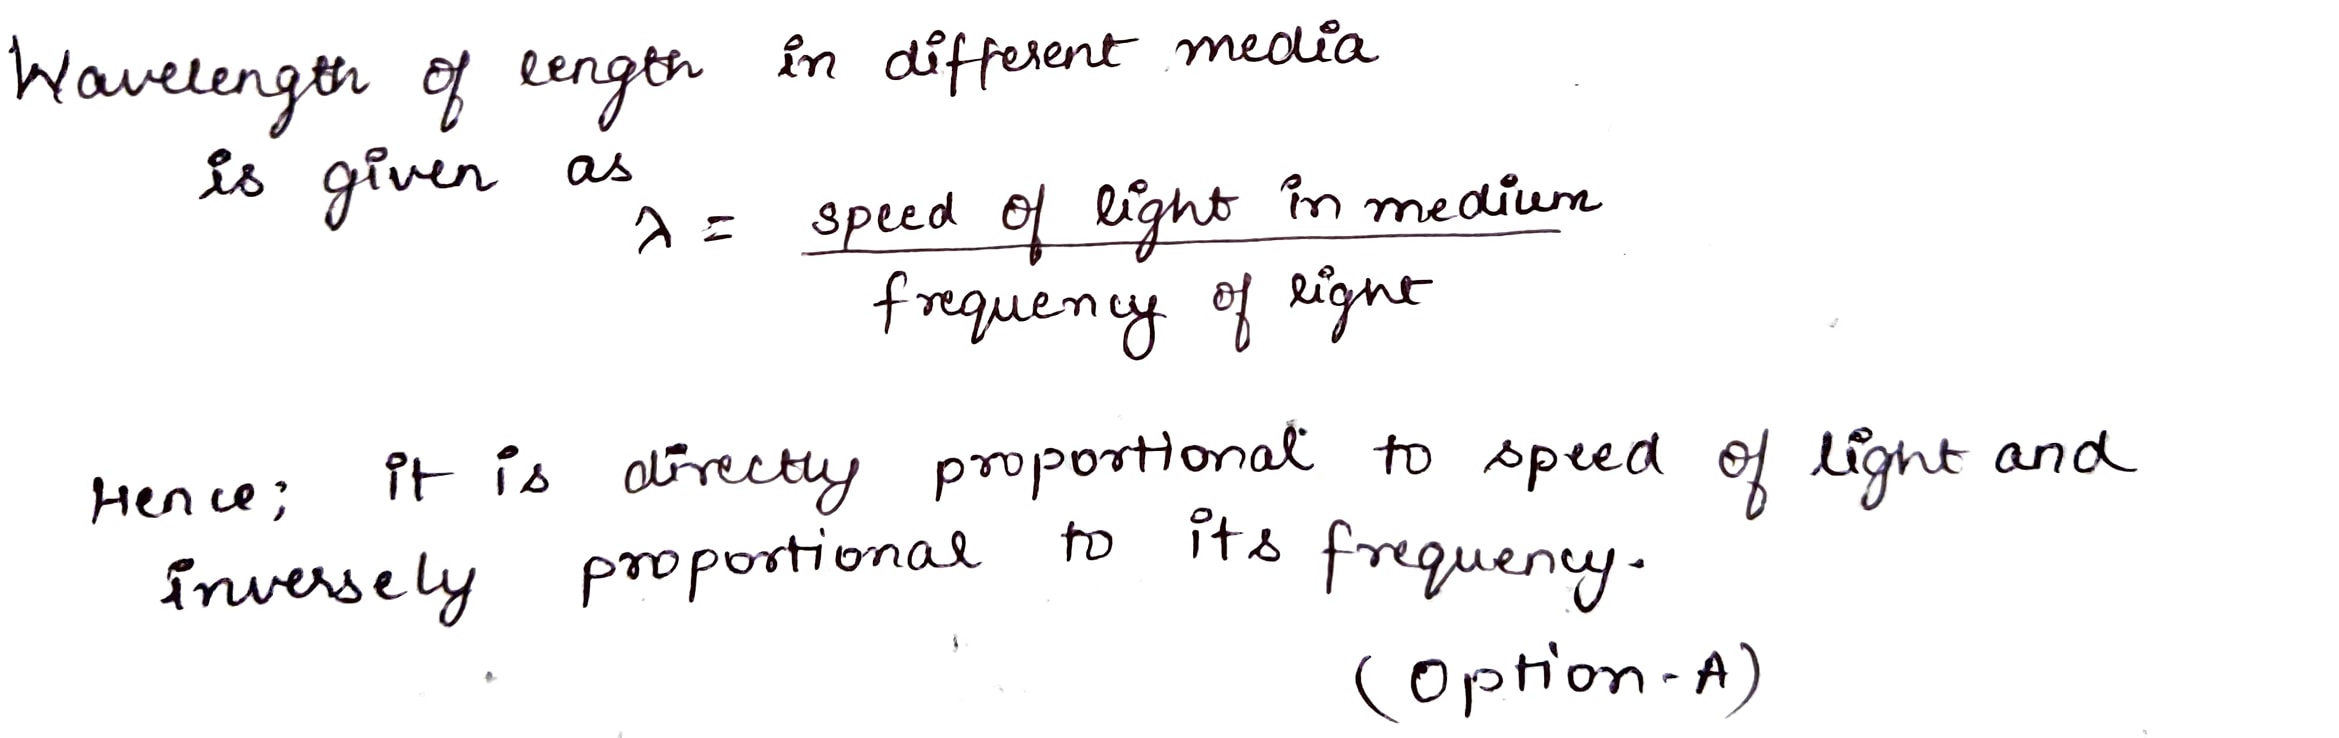 Wavelength of length in different media
is given as
λ = speed of light in medium
frequency of light
Hence; it is directly proportional to speed of light and
inversely proportional to its frequency.
(Option-A)